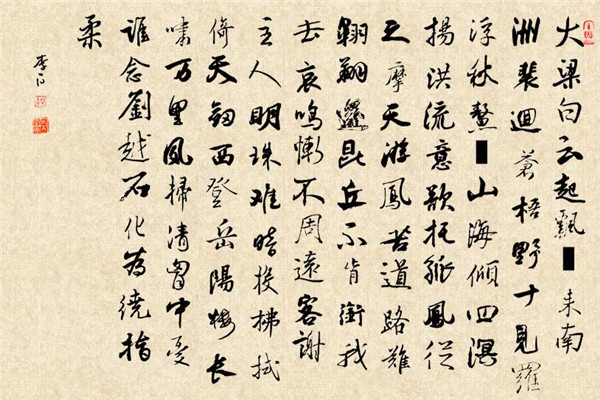 大梁白云起飄■来南
洲裴迴蒼梧野十見羅
浮秋鰲■山海傾四溟
揚洪流意欲托孤鳳從
之摩天游鳳苦道路難
翱翔還昆丘不肯銜我
去哀鳴慚不周遠客謝
主人明珠难暗投拂拭
倚天劔西登岳陽樓长
嘯万里風掃清胷中憂
誰念劉越石化為繞指
柔
李白